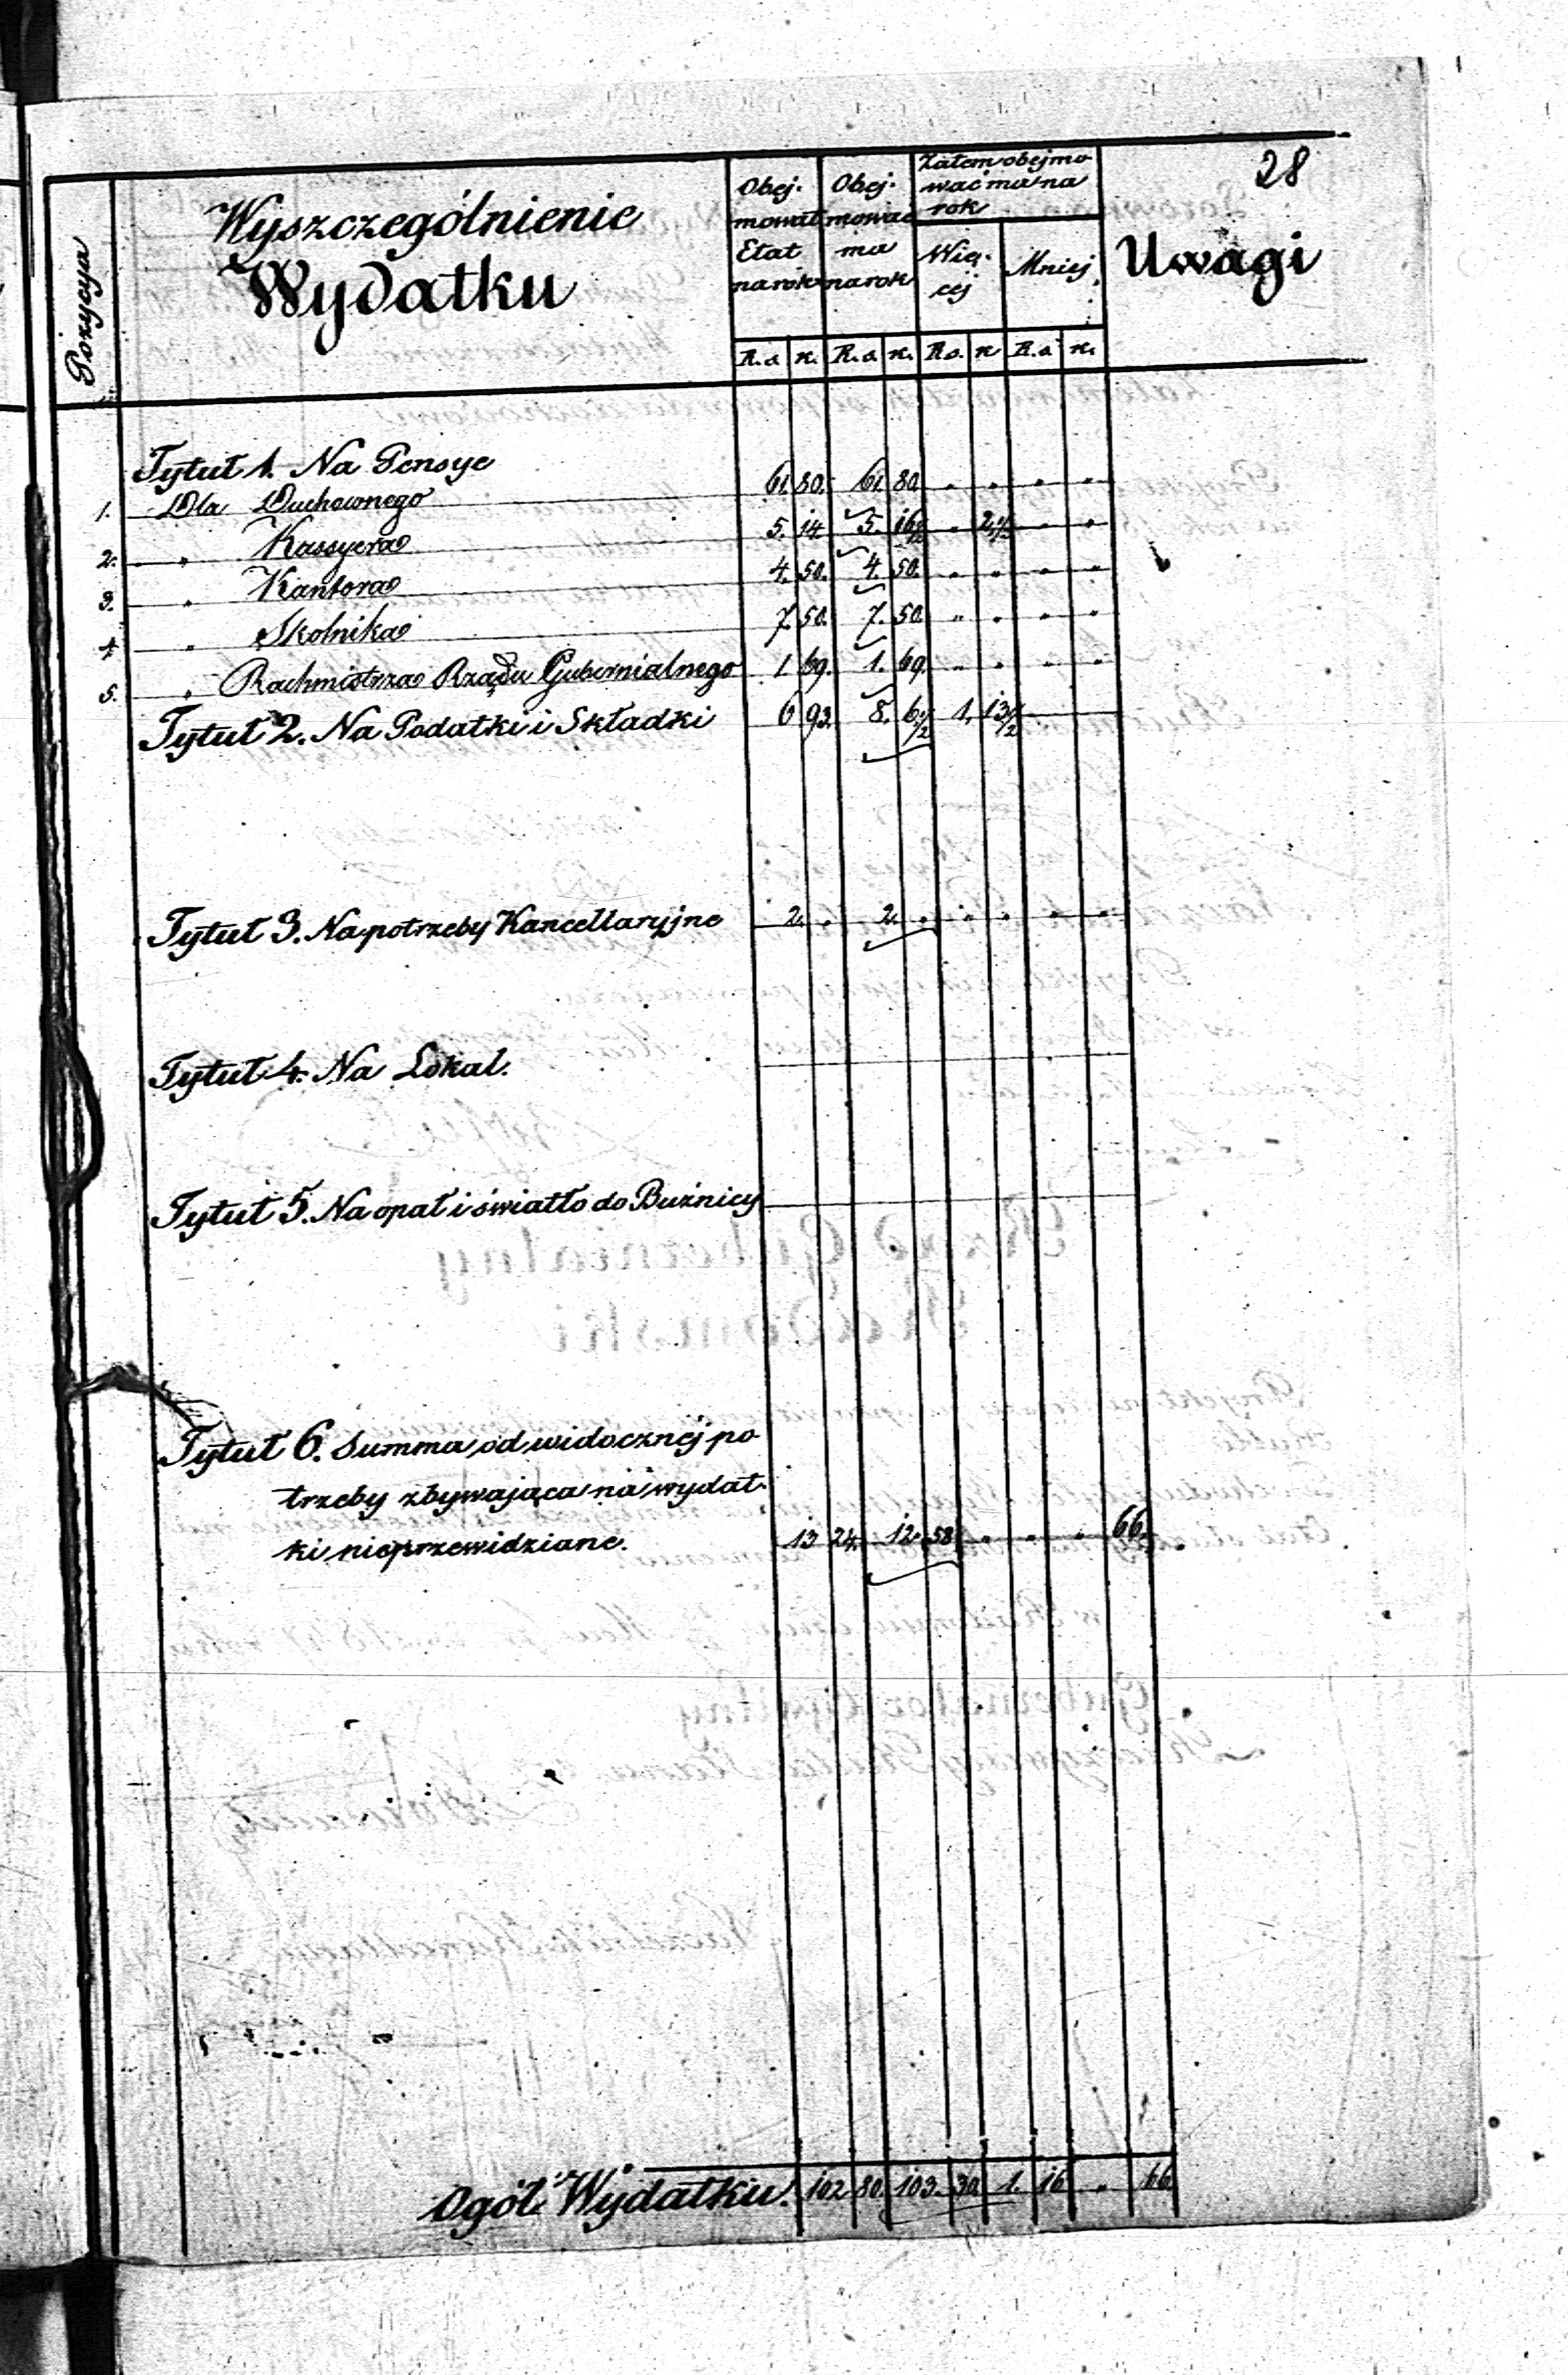 28
Pozycya
Wyszczególnienie
Wydatku
Obej-
mował
Etat
na rok
Obej-
mować
ma
na rok
Zatem obejmo
wać ma na
rok
Wię-
cej
Mniej
Uwagi
R.s. k. R.s. k. R.s. k R.s k.
Tytuł 1. Na Pensye
1. Dla Duchownego 61. 80. 61. 80. " " " "
2. " Kassyera 5. 14. 5. 16½ " 2½ " "
3. " Kantora 4. 50. 4. 50. " " " "
4. " Skolnika 7. 50. 7. 50. " " " "
5. " Rachmistrza Rządu Gubernialnego 1. 69. 1. 69. " " " "
Tytuł 2. Na Podatki i Składki 6 93. 8. 6½ 1. 13½
Tytuł 3. Na potrzeby Kancellaryjne 2. " 2. " " " " "
Tytuł 4. Na Lokal.
Tytuł 5. Na opał i światło do Buźnicy
Tytuł 6. Summa od widocznej po
trzeby zbywająca na wydat-
ki nieprzewidziane. 13 24. 12. 58 " " " 66.
Ogół Wydatku. 102 80. 103. 30. 1. 16 " 66